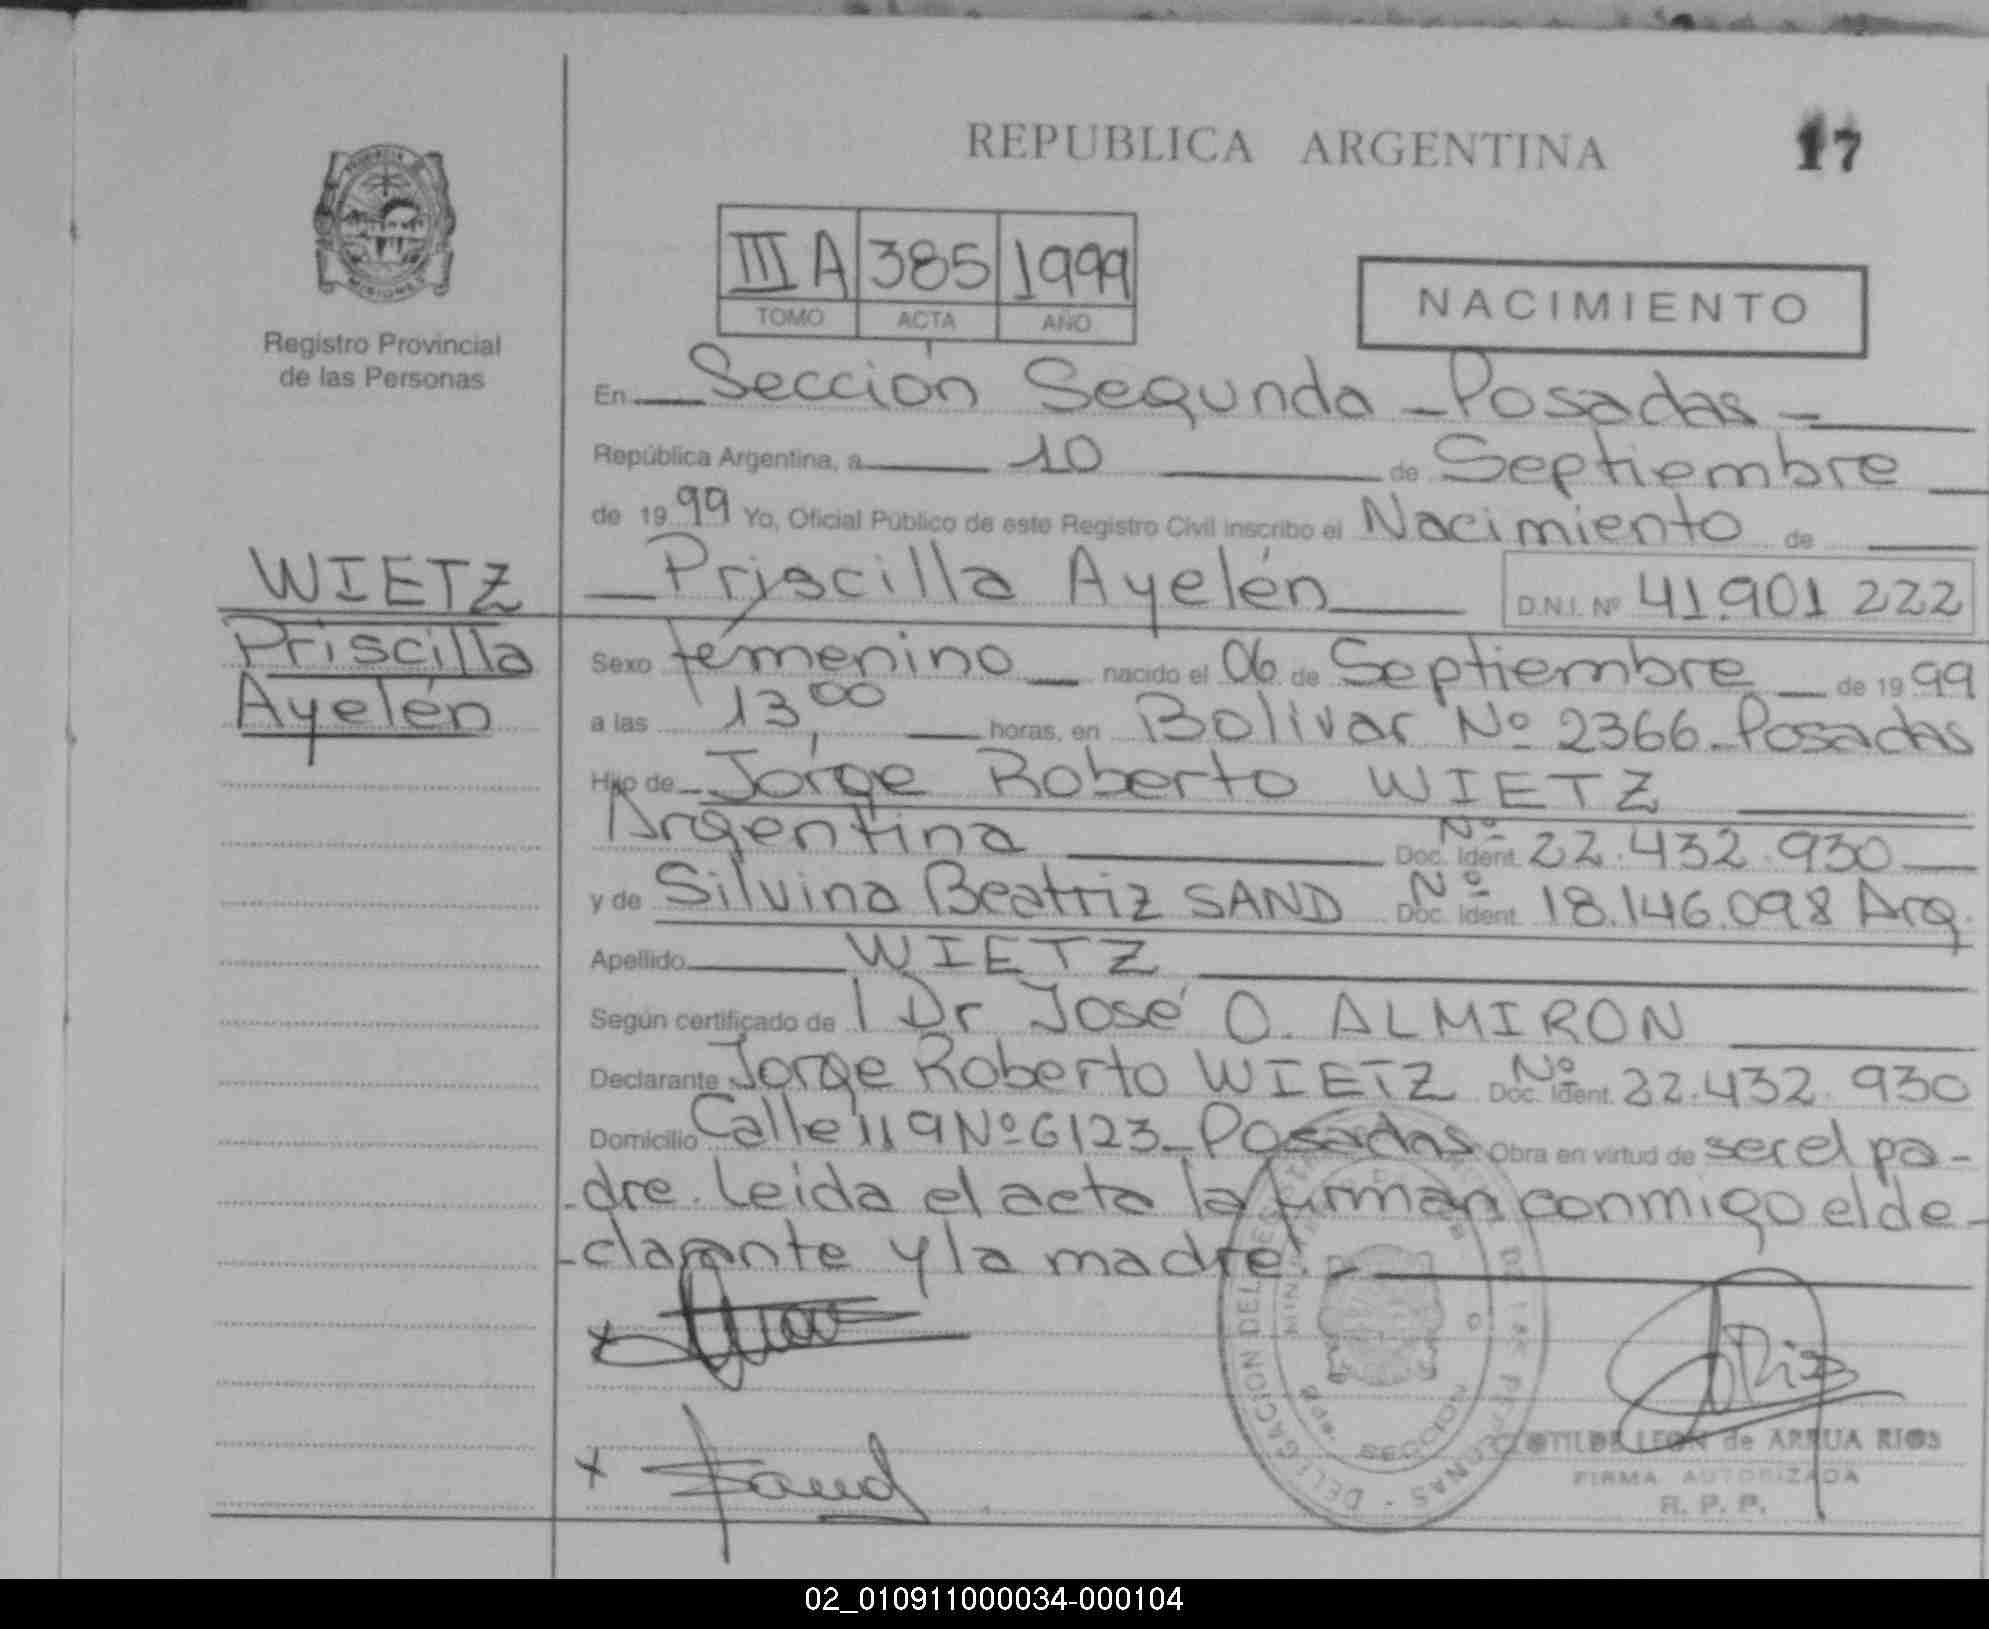 REPUBLICA ARGENTINA
17
PROVINCIA
MISIONES
Registro Provincial
de las Personas
III A 385 1999
TOMO ACTA AÑO
NACIMIENTO
En Sección Segunda - Posadas -
República Argentina, a 10 de Septiembre
de 1999 Yo, Oficial Público de este Registro Civil inscribo el Nacimiento de
WIETZ
Priscilla
Ayelén
Priscilla Ayelén D.N.I. Nº 41.901 222
Sexo femenino nacido el 06 de Septiembre de 1999
a las 13,00 horas, en Bolivar Nº 2366 - Posadas
Hijo de Jorge Roberto WIETZ
Argentina Doc. Ident. Nº 22.432.930
y de Silvina Beatriz SAND Doc. Ident. Nº 18.146.098 Arg.
Apellido WIETZ
Según certificado de l Dr José O. ALMIRON
Declarante Jorge Roberto WIETZ Doc. Ident. Nº 22.432.930
Domicilio Calle 119 Nº 6123 - Posadas Obra en virtud de ser el pa-
-dre. Leida el acta la firman conmigo el de-
-clarante y la madre.-
x
x Sand
DELEGACION DEL PERSONAS
SECCION
CLOTILDE LEON de ARRUA RIOS
FIRMA AUTORIZADA
R. P. P.
02_010911000034-000104